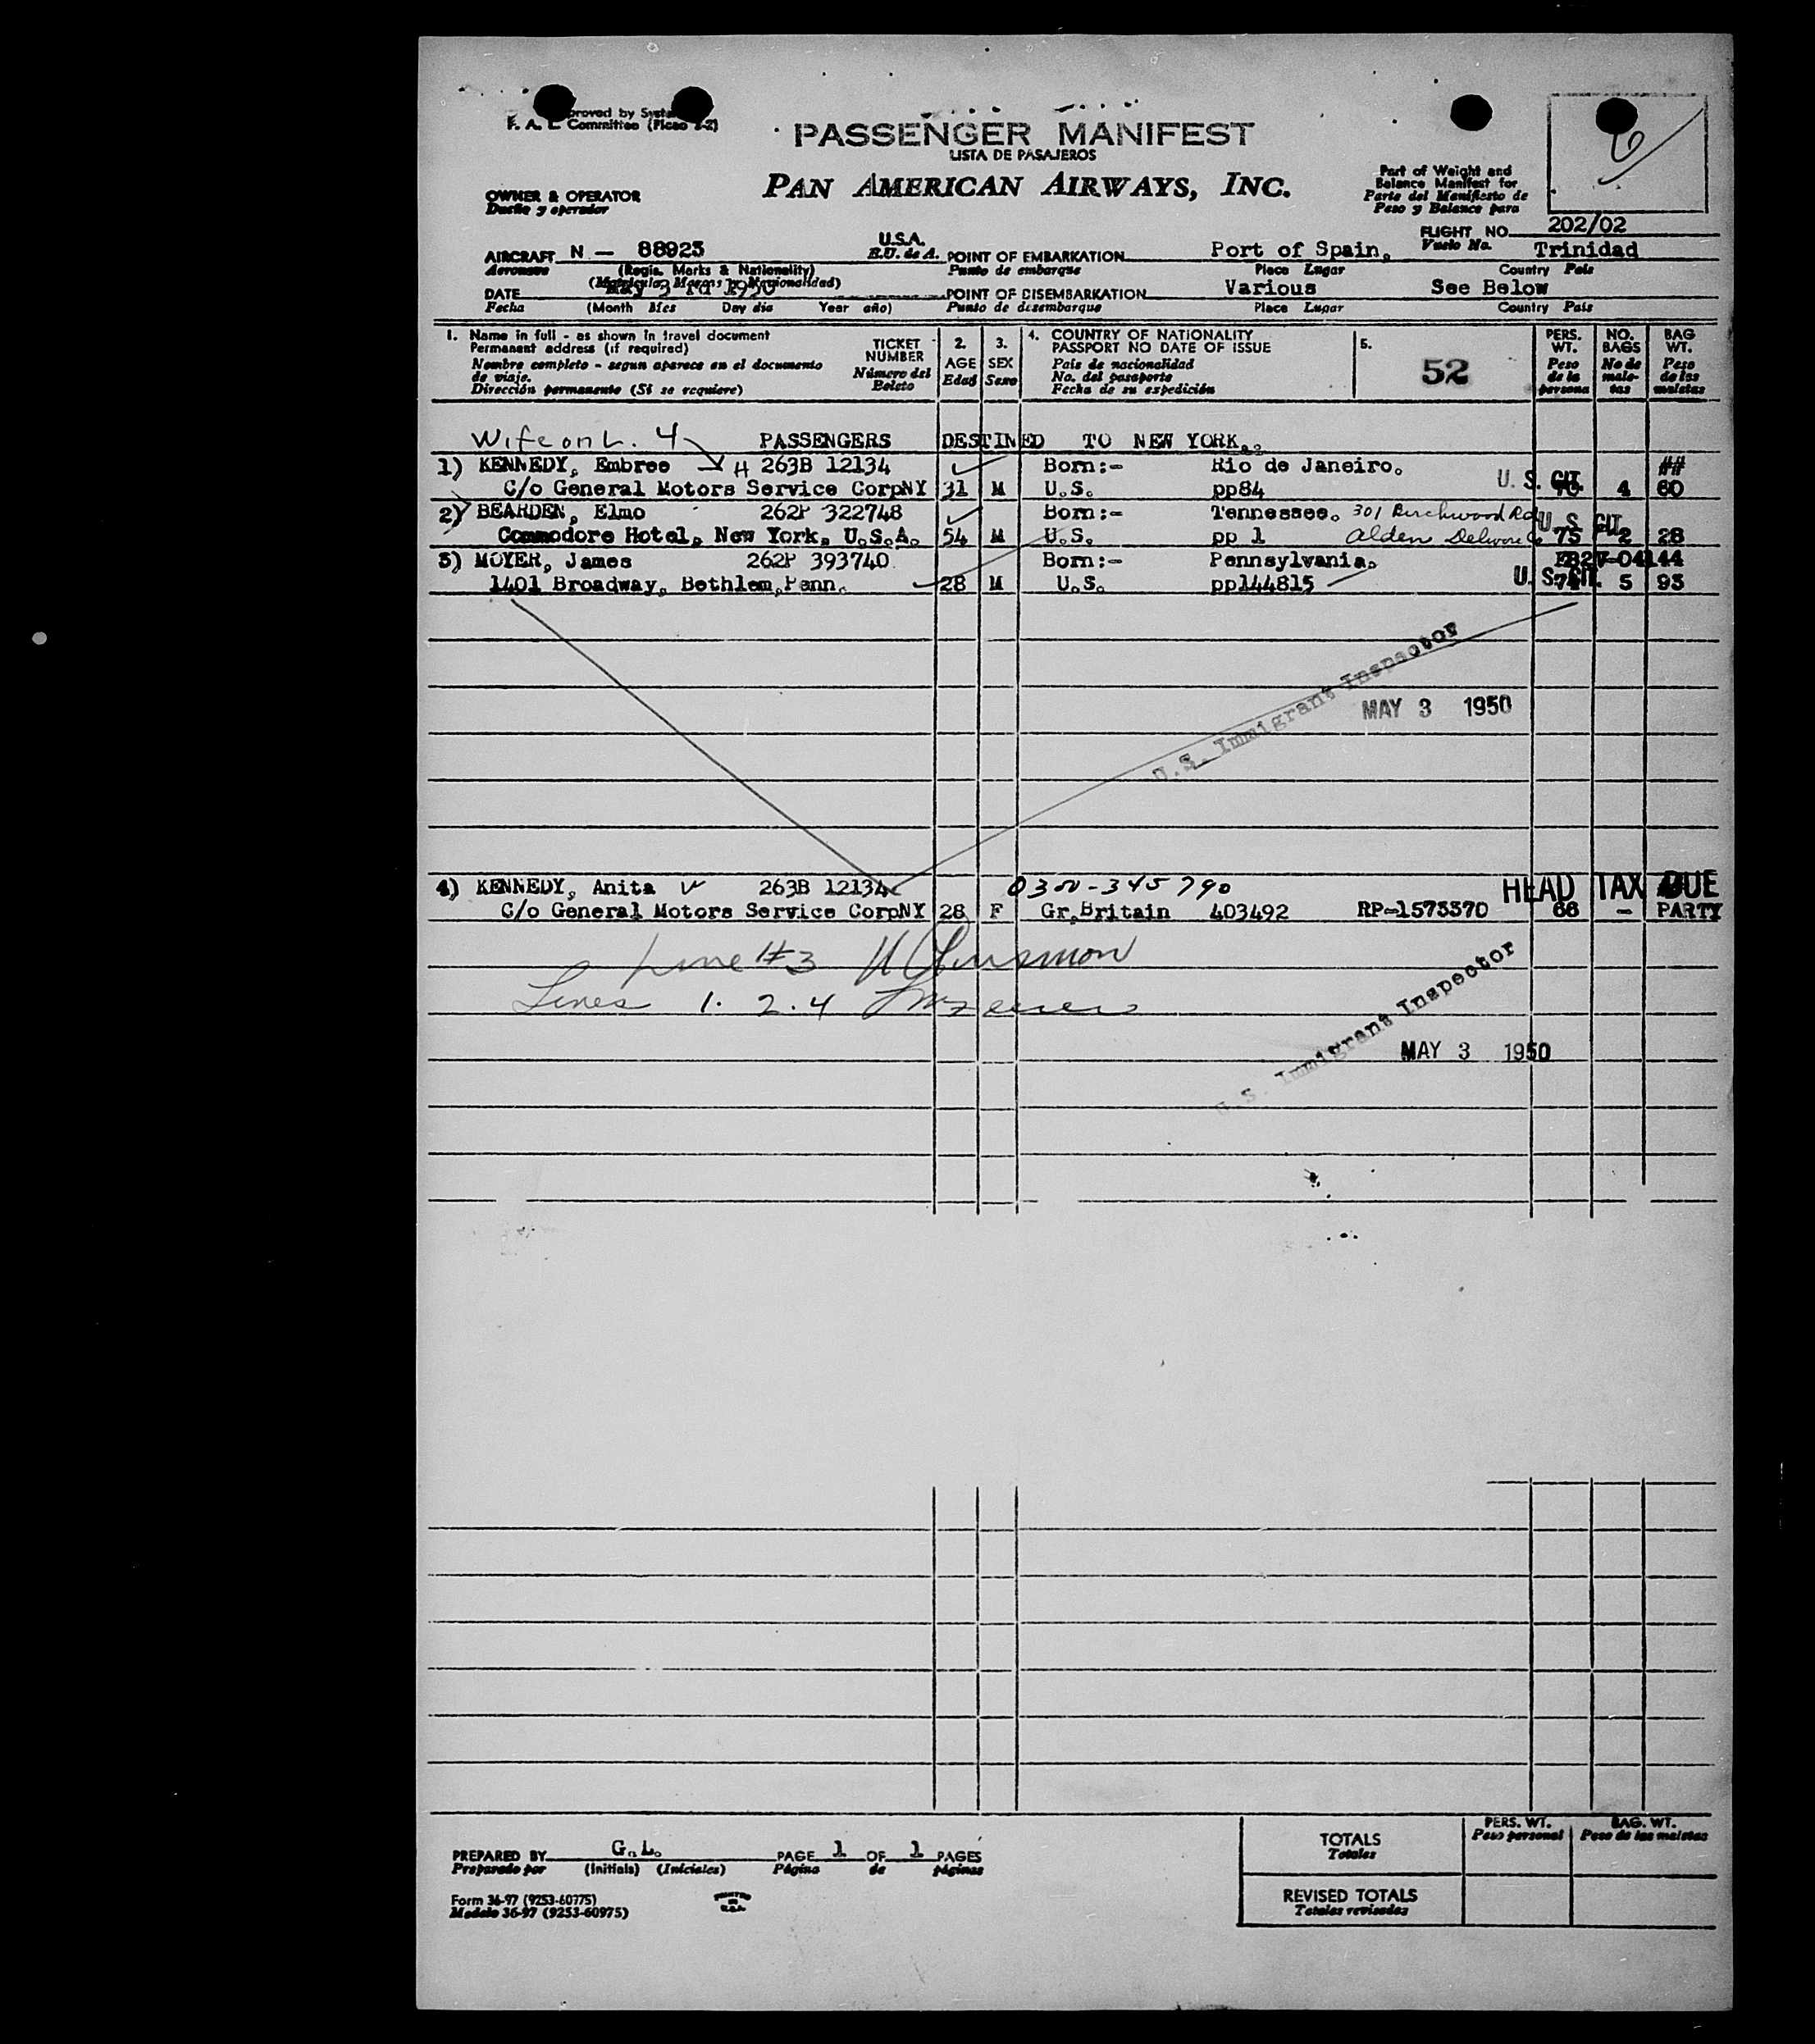 proved by Syste
F. A. L. Committee (Ficao 2-2)
PASSENGER MANIFEST
LISTA DE PASAJEROS
PAN AMERICAN AIRWAYS, INC.
OWNER & OPERATOR
Dueño y operador
Part of Weight and
Balance Manifest for
Parte del Manifiesto de
Peso y Balance para
6
FLIGHT NO. 202/02
Vuelo No.
AIRCRAFT N - 88923
Aeronave
(Regis. Marks & Nationality)
U.S.A.
E.U. de A.
POINT OF EMBARKATION Port of Spain, Trinidad
Punto de embarque Place Lugar Country Pais
DATE May 3 1950
Fecha (Month Mes Day dia Year año)
POINT OF DISEMBARKATION Various See Below
Punto de desembarque Place Lugar Country Pais
1. Name in full - as shown in travel document
Permanent address (if required)
Nombre completo - segun aparece en el documento
de viaje.
Dirección permanente (Si se requiere)
TICKET
NUMBER
Número del
Boleto
2.
AGE
Edad
3.
SEX
Sexo
4. COUNTRY OF NATIONALITY
PASSPORT NO DATE OF ISSUE
Pais de nacionalidad
No. del pasaporte
Fecha de su expedición
5.
52
PERS.
WT.
Peso
de la
persona
NO.
BAGS
No de
male-
tas
BAG
WT.
Peso
de las
maletas
Wife on L. 4 PASSENGERS DESTINED TO NEW YORK.
1) KENNEDY, Embree H 263B 12134 Born:- Rio de Janeiro. ##
C/o General Motors Service CorpNY 31 M U.S. pp84 U. S. CIT. 70 4 60
2) BEARDEN, Elmo 262P 322748 Born:- Tennessee. 301 Birchwood Rd U. S. CIT
Commodore Hotel, New York, U.S.A. 54 M U.S. pp 1 Alden 75 2 28
3) MOYER, James 262P 393740 Born:- Pennsylvania.
1401 Broadway, Bethlem, Penn. 28 M U.S. pp144815 U. S. CIT. 5 93
U.S. Immigrant Inspector
MAY 3 1950
4) KENNEDY, Anita 263B 12134 0300-345790 HEAD TAX DUE
C/o General Motors Service CorpNY 28 F Gr.Britain 403492 RP-1573370 66 - PARTY
Line #3
Lines 1. 2. 4
U.S. Immigrant Inspector
MAY 3 1950
PREPARED BY G.L. PAGE 1 OF 1 PAGES
Preparado por (Initials) (Iniciales) Página de páginas
Form 36-97 (9253-60775)
Modelo 36-97 (9253-60975)
PRINTED
IN
U.S.A.
PERS. WT.
Peso personal
BAG. WT.
Peso de las maletas
TOTALS
Totales
REVISED TOTALS
Totales revisados